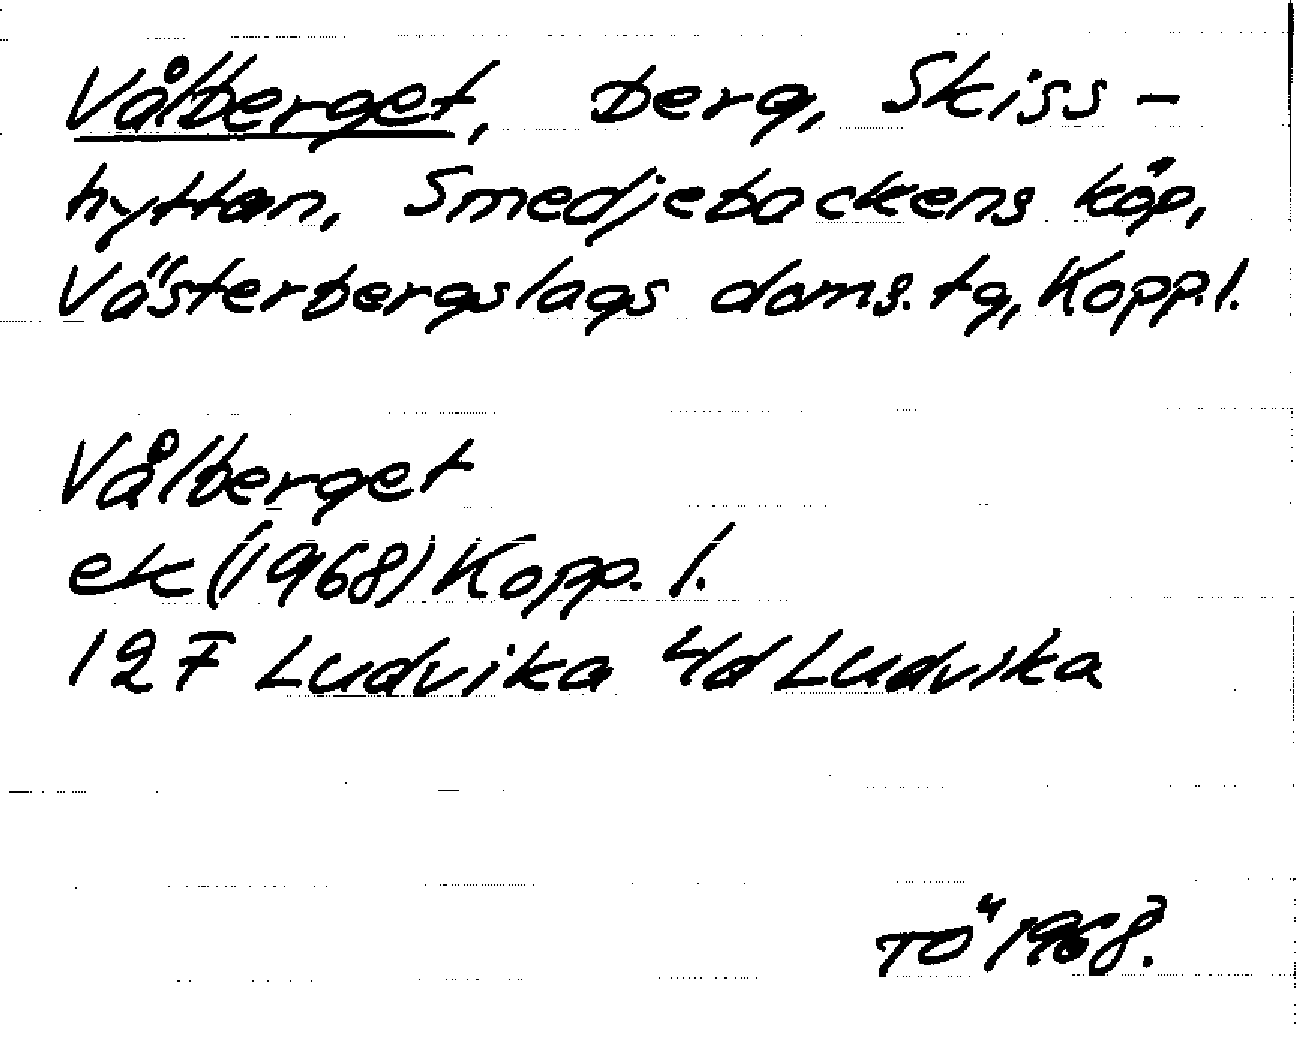 Vålberget, berg, Skiss-
hyttan, Smedjebackens köp,
Västerbergslags doms. tg, Kopp.l.
Vålberget
ek (1968) Kopp. l.
12F Ludvika 4d Ludvika
TÖ 1968.